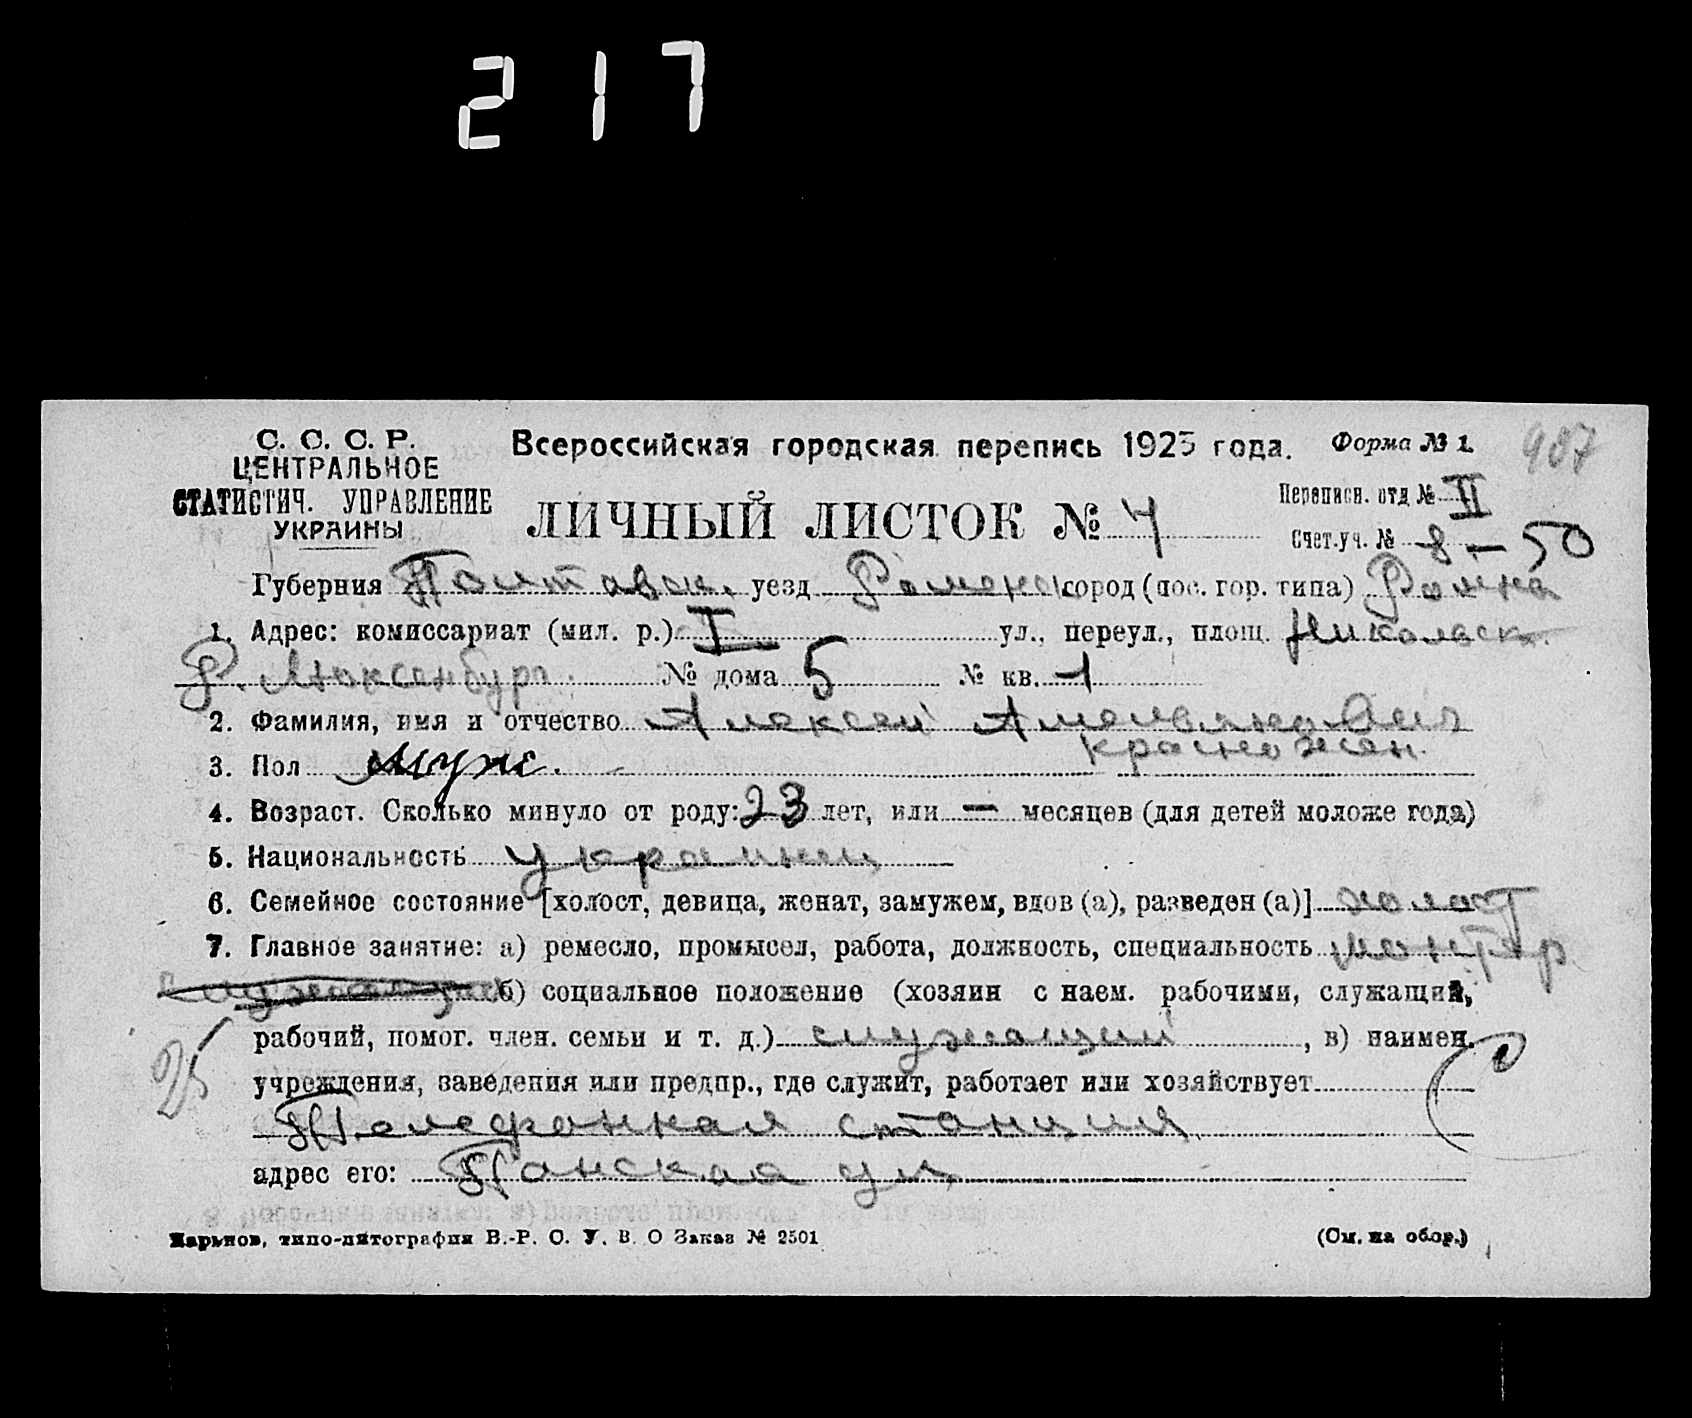 217
С. С. С. Р.
ЦЕНТРАЛЬНОЕ
СТАТИСТИЧ. УПРАВЛЕНИЕ
УКРАИНЫ
Всероссийская городская перепись 1923 года. Форма № 1.
987
ЛИЧНЫЙ ЛИСТОК № 4
Переписн. отд № II
Счет.уч. № 8 – 50
Губерния Полтавск. уезд Роменск город (пос. гор. типа) Ромна
1. Адрес: комиссариат (мил. р.) I ул., переул., площ. Никольск.
Р. Люксенбург. № дома 5 № кв. 1
2. Фамилия, имя и отчество Алексей Амельянович
Красножен.
3. Пол муж.
4. Возраст. Сколько минуло от роду: 23 лет, или — месяцев (для детей моложе года)
5. Национальность украинец
6. Семейное состояние [холост, девица, женат, замужем, вдов (а), разведен (а)] холост
7. Главное занятие: а) ремесло, промысел, работа, должность, специальность монтер
служащий б) социальное положение (хозяин с наем. рабочими, служащий,
рабочий, помог. член. семьи и т. д.) служащий, в) наимен.
учреждения, заведения или предпр., где служит, работает или хозяйствует
Телефонная станция
адрес его: Панская ул.
Харьков, типо-литография В.-Р. О. У. В. О Заказ № 2501
(См. на обор.)